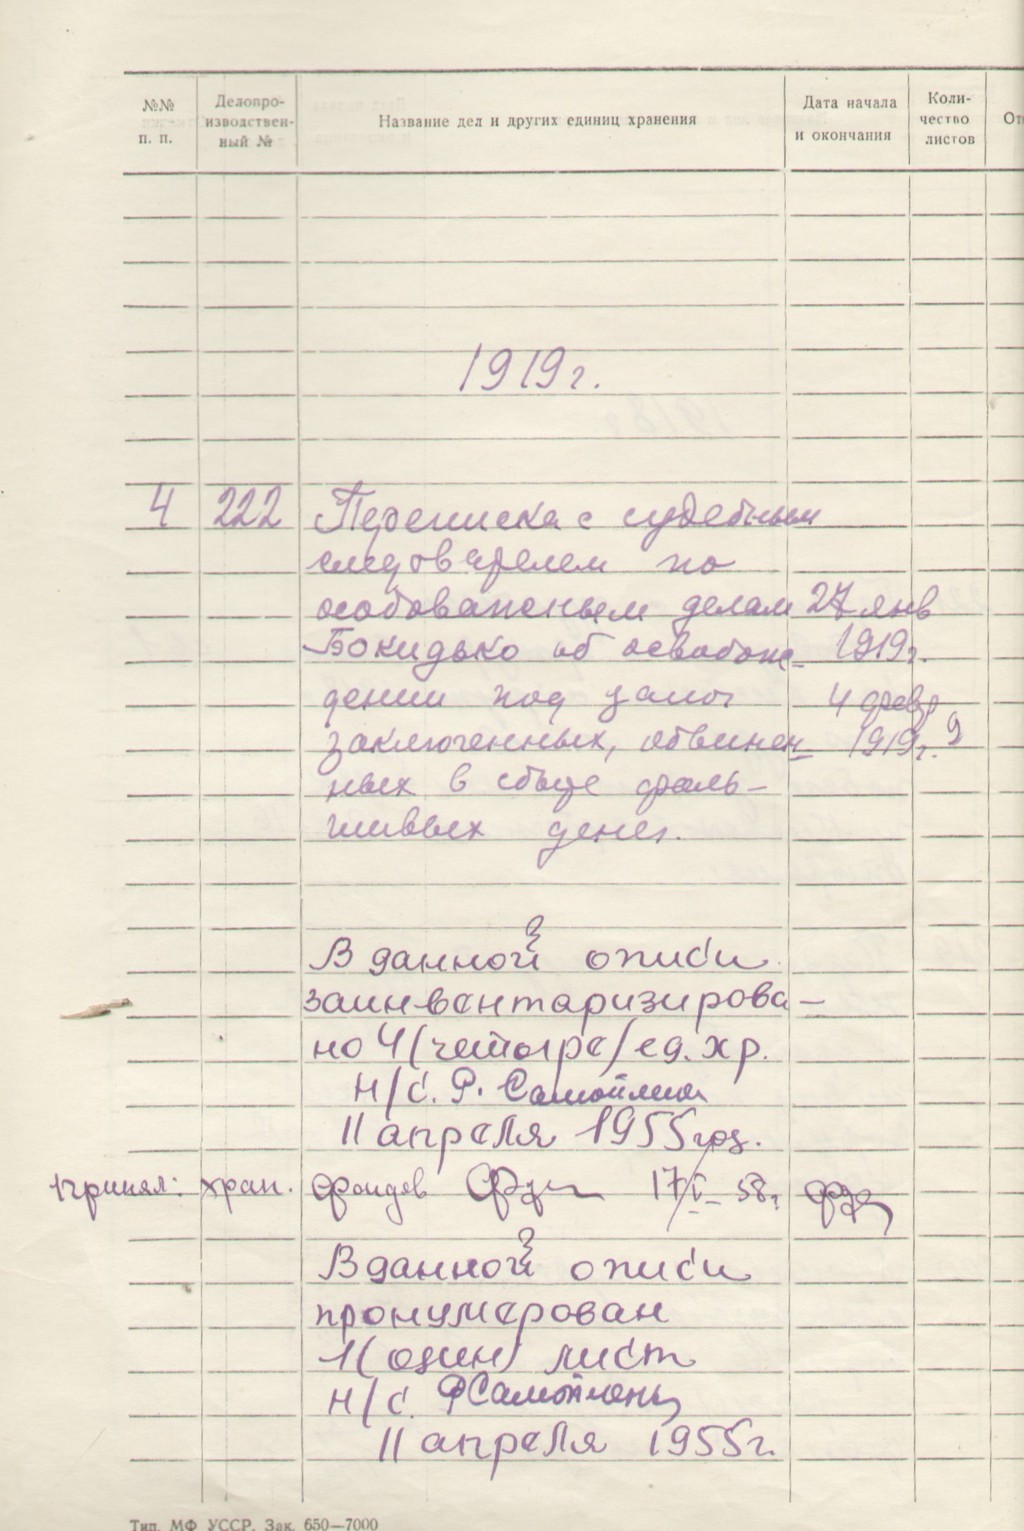 №№ п. п.
Делопро-
изводствен-
ный №
Название дел и других единиц хранения
Дата начала
и окончания
Коли-
чество
листов
От
1919 г.
4 222 Переписка с судебным
следователем по
особоважным делам 27 янв
Бокидько об освобож- 1919 г.
дении под залог 4 февр
заключенных, обвинен- 1919 г. 9
ных в сбыте фаль-
шивых денег.
В данной описи
заинвентаризирова-
но 4 (четыре) ед. хр.
Н/с. Р.
11 апреля 1955 год.
принял: хран. фондов 17/ 58 г.
В данной описи
пронумерован
1 (один) лист
н/с.
11 апреля 1955 г.
Тип. МФ УССР. Зак. 650—7000